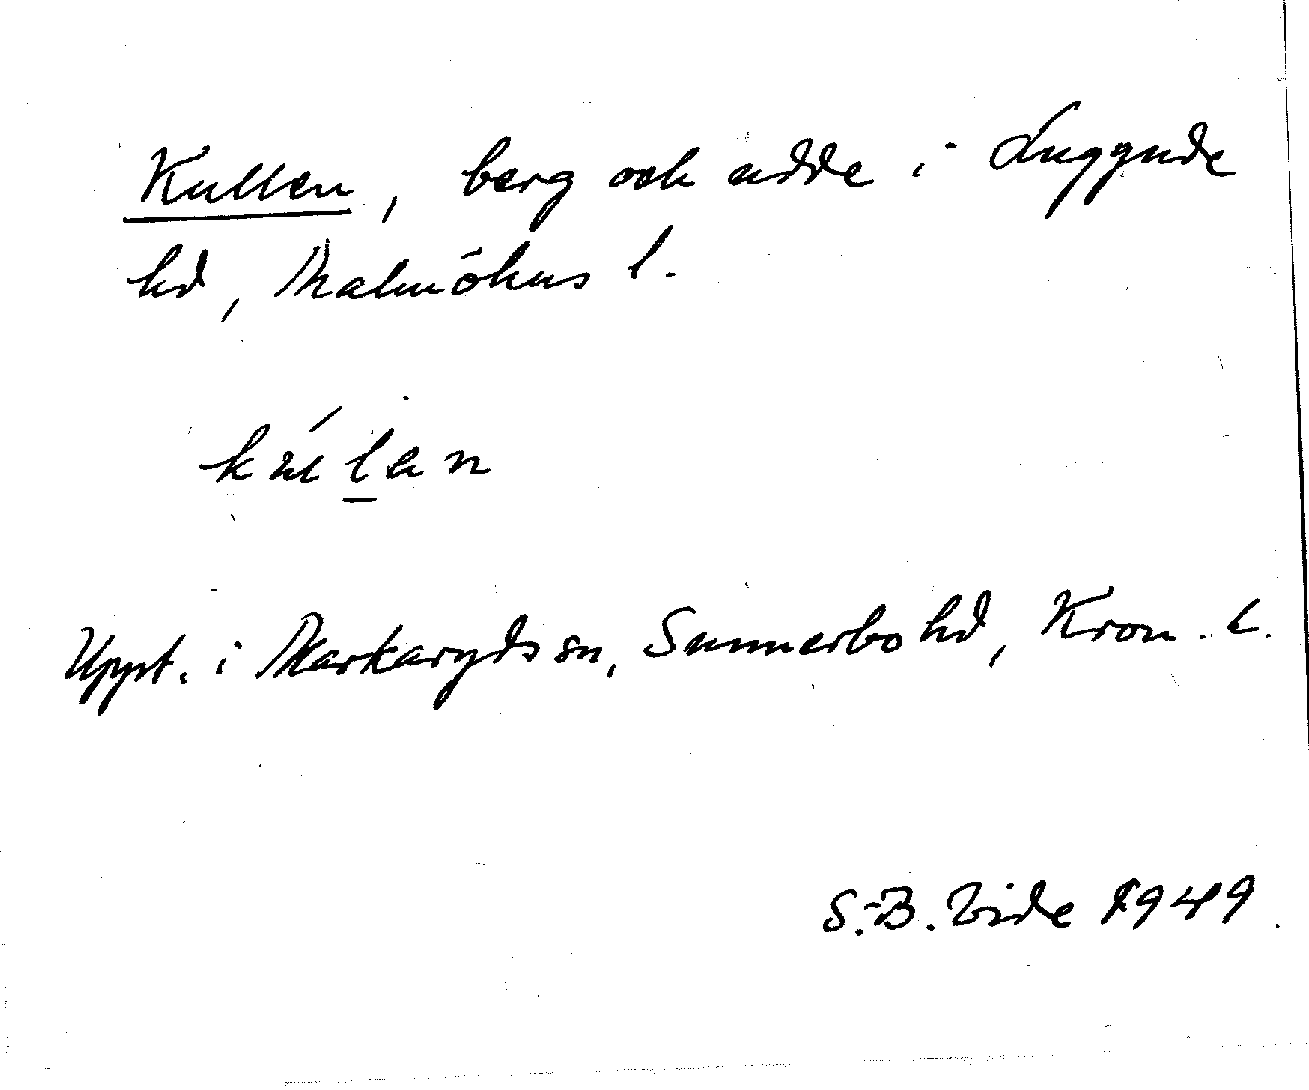 Kullen, berg och udde i Luggude
hd, Malmöhus l.
kúlan
Uppt. i Markaryds sn, Sunnerbo hd, Kron. l.
S.-B. Vide 1949.